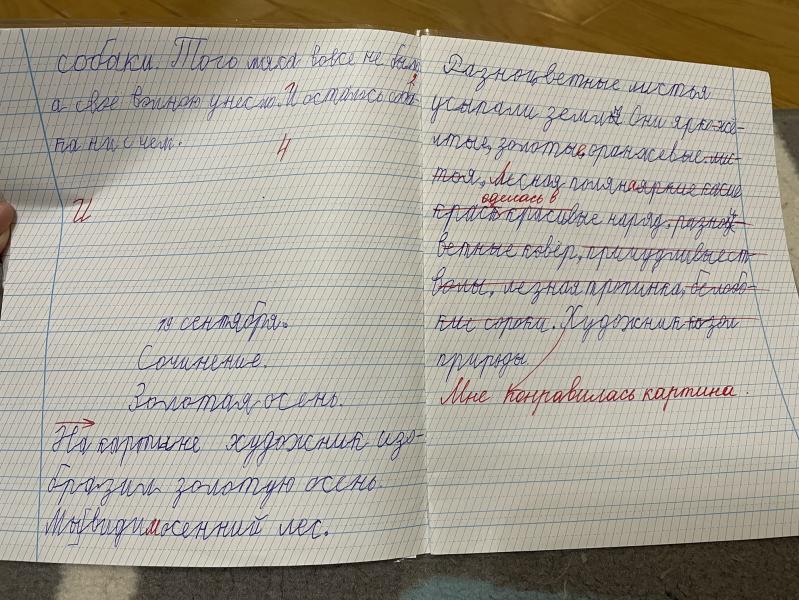 собаки. Того мяса вовсе не было,
а своё волною унесло. И осталась соба-
ка ни с чем.
4
И
19 сентября.
Сочинение.
Золотая осень.
На картине художник изо-
бразил золотую осень.
Мы видим осенний лес.
Разноцветные листья
усыпали землю. Они ярко-жё-
лтые, золотые, оранжевые ли-
тоя. Лесная поляна яркие какие
оделась в
крас красивые наряд, разноц
ветные ковёр, примудливые ст
волы, лезная тртинка, белобо-
кие сороки. Художник
природы.
Мне понравилась картина.